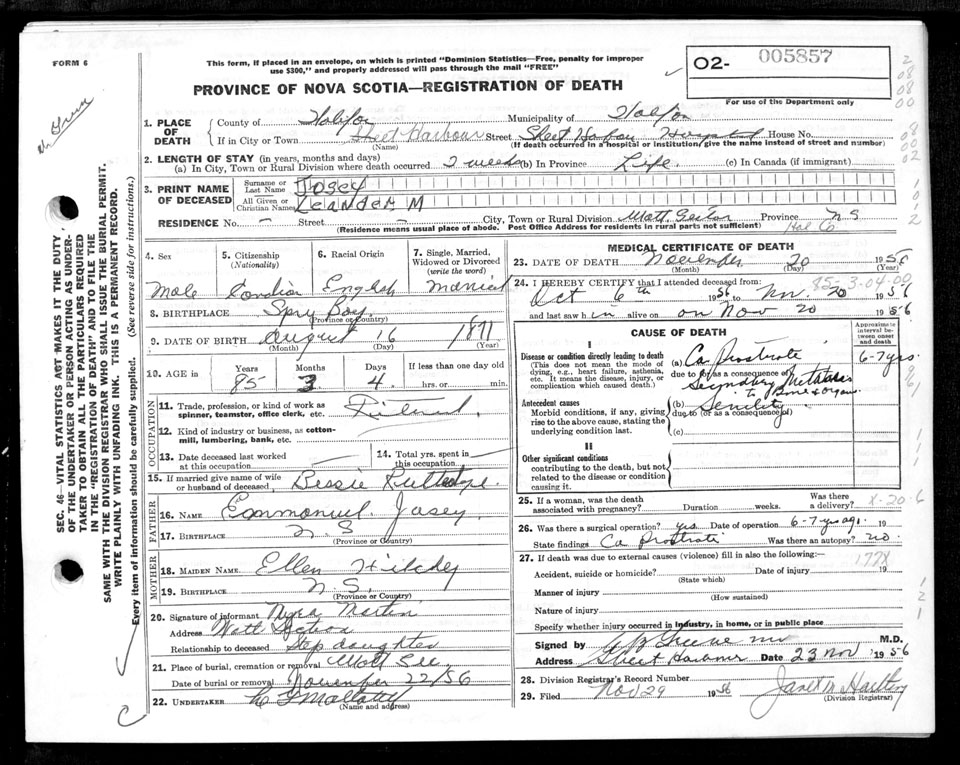 FORM 6
This form, if placed in an envelope, on which is printed "Dominion Statistics—Free, penalty for improper
use $300," and properly addressed will pass through the mail "FREE"
O2- 005857
For use of the Department only
PROVINCE OF NOVA SCOTIA—REGISTRATION OF DEATH
1. PLACE OF DEATH
County of Halifax Municipality of Halifax
If in City or Town Sheet Harbour Street Sheet Harbour Hospital House No.
(Name) (If death occurred in a hospital or institution give the name instead of street and number)
2. LENGTH OF STAY (in years, months and days)
(a) In City, Town or Rural Division where death occurred 2 weeks (b) In Province Life. (c) In Canada (if immigrant)
3. PRINT NAME OF DECEASED
Surname or Last Name Josey
All Given or Christian Names Leander M
RESIDENCE No. - Street - City, Town or Rural Division Province N S
(Residence means usual place of abode. Post Office Address for residents in rural parts not sufficient) Hal Co
4. Sex Male
5. Citizenship (Nationality) Canadian
6. Racial Origin English
7. Single, Married, Widowed or Divorced (write the word) Married
8. BIRTHPLACE Spry Bay
(Province or Country)
9. DATE OF BIRTH August 16 1871
(Month) (Day) (Year)
10. AGE in Years 85 Months 3 Days 4. If less than one day old hrs. or min.
OCCUPATION
11. Trade, profession, or kind of work as spinner, teamster, office clerk, etc. Retired.
12. Kind of industry or business, as cotton-mill, lumbering, bank, etc.
13. Date deceased last worked at this occupation
14. Total yrs. spent in this occupation
15. If married give name of wife or husband of deceased Bessie Rutledge.
FATHER
16. NAME Emmanuel Josey
17. BIRTHPLACE N. S
(Province or Country)
MOTHER
18. MAIDEN NAME Ellen
19. BIRTHPLACE N S.
(Province or Country)
20. Signature of informant Martin
Address
Relationship to deceased Step daughter
21. Place of burial, cremation or removal
Date of burial or removal November 22/56
22. UNDERTAKER
(Name and address)
MEDICAL CERTIFICATE OF DEATH
23. DATE OF DEATH November 20 1956
(Month) (Day) (Year)
24. I HEREBY CERTIFY that I attended deceased from:
85-3-04-00
Oct 6th 1956 to Nov. 20 1956
and last saw h im alive on Nov 20 1956
CAUSE OF DEATH
Approximate interval between onset and death
I
Disease or condition directly leading to death
(This does not mean the mode of dying, e.g., heart failure, asthenia, etc. It means the disease, injury, or complication which caused death.)
(a) Ca Prostrate 6-7 yrs
due to (or as a consequence of)
Secondary Metastasis
to Bone & organs
Antecedent causes
Morbid conditions, if any, giving rise to the above cause, stating the underlying condition last.
(b) Senility
due to (or as a consequence of)
(c)
II
Other significant conditions
contributing to the death, but not related to the disease or condition causing it.
25. If a woman, was the death associated with pregnancy? Duration weeks. Was there a delivery? X-20-6
26. Was there a surgical operation? yes Date of operation 6-7 yrs ago. 19
State findings Ca Prostrate Was there an autopsy? no.
27. If death was due to external causes (violence) fill in also the following:—
177X
Accident, suicide or homicide? Date of injury 19
(State which)
Manner of injury
(How sustained)
Nature of injury
Specify whether injury occurred in industry, in home, or in public place
Signed by Greene M.D.
Address Sheet Harbour Date 23 Nov 1956
28. Division Registrar's Record Number
29. Filed Nov 29 1956 Janet
(Division Registrar)
SEC. 46—VITAL STATISTICS ACT MAKES IT THE DUTY
OF THE UNDERTAKER OR PERSON ACTING AS UNDER-
TAKER TO OBTAIN ALL THE PARTICULARS REQUIRED
IN THE "REGISTRATION OF DEATH" AND TO FILE THE
SAME WITH THE DIVISION REGISTRAR WHO SHALL ISSUE THE BURIAL PERMIT.
WRITE PLAINLY WITH UNFADING INK. THIS IS A PERMANENT RECORD.
Every item of information should be carefully supplied. (See reverse side for instructions.)
C